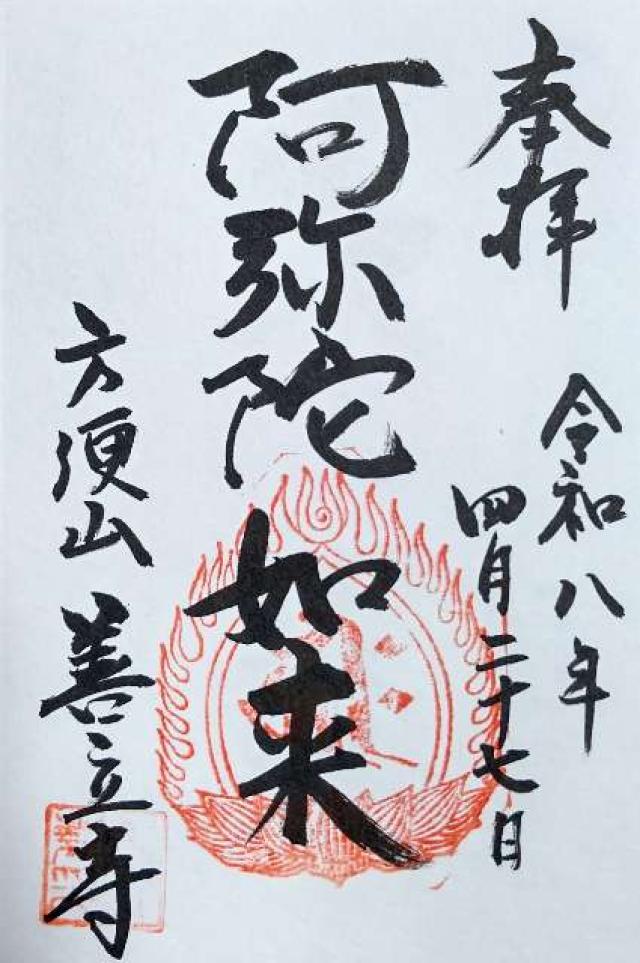 奉拝
令和八年
四月二十七日
阿弥陀如来
方便山 善立寺